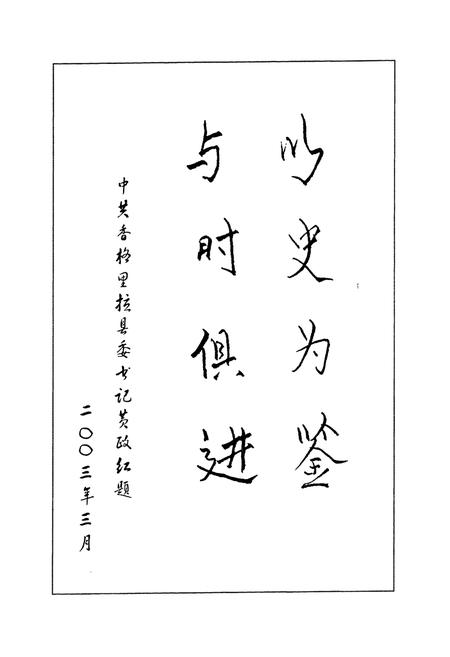 以史为鉴
与时俱进
中共香格里拉县委书记黄政红题
二〇〇三年三月